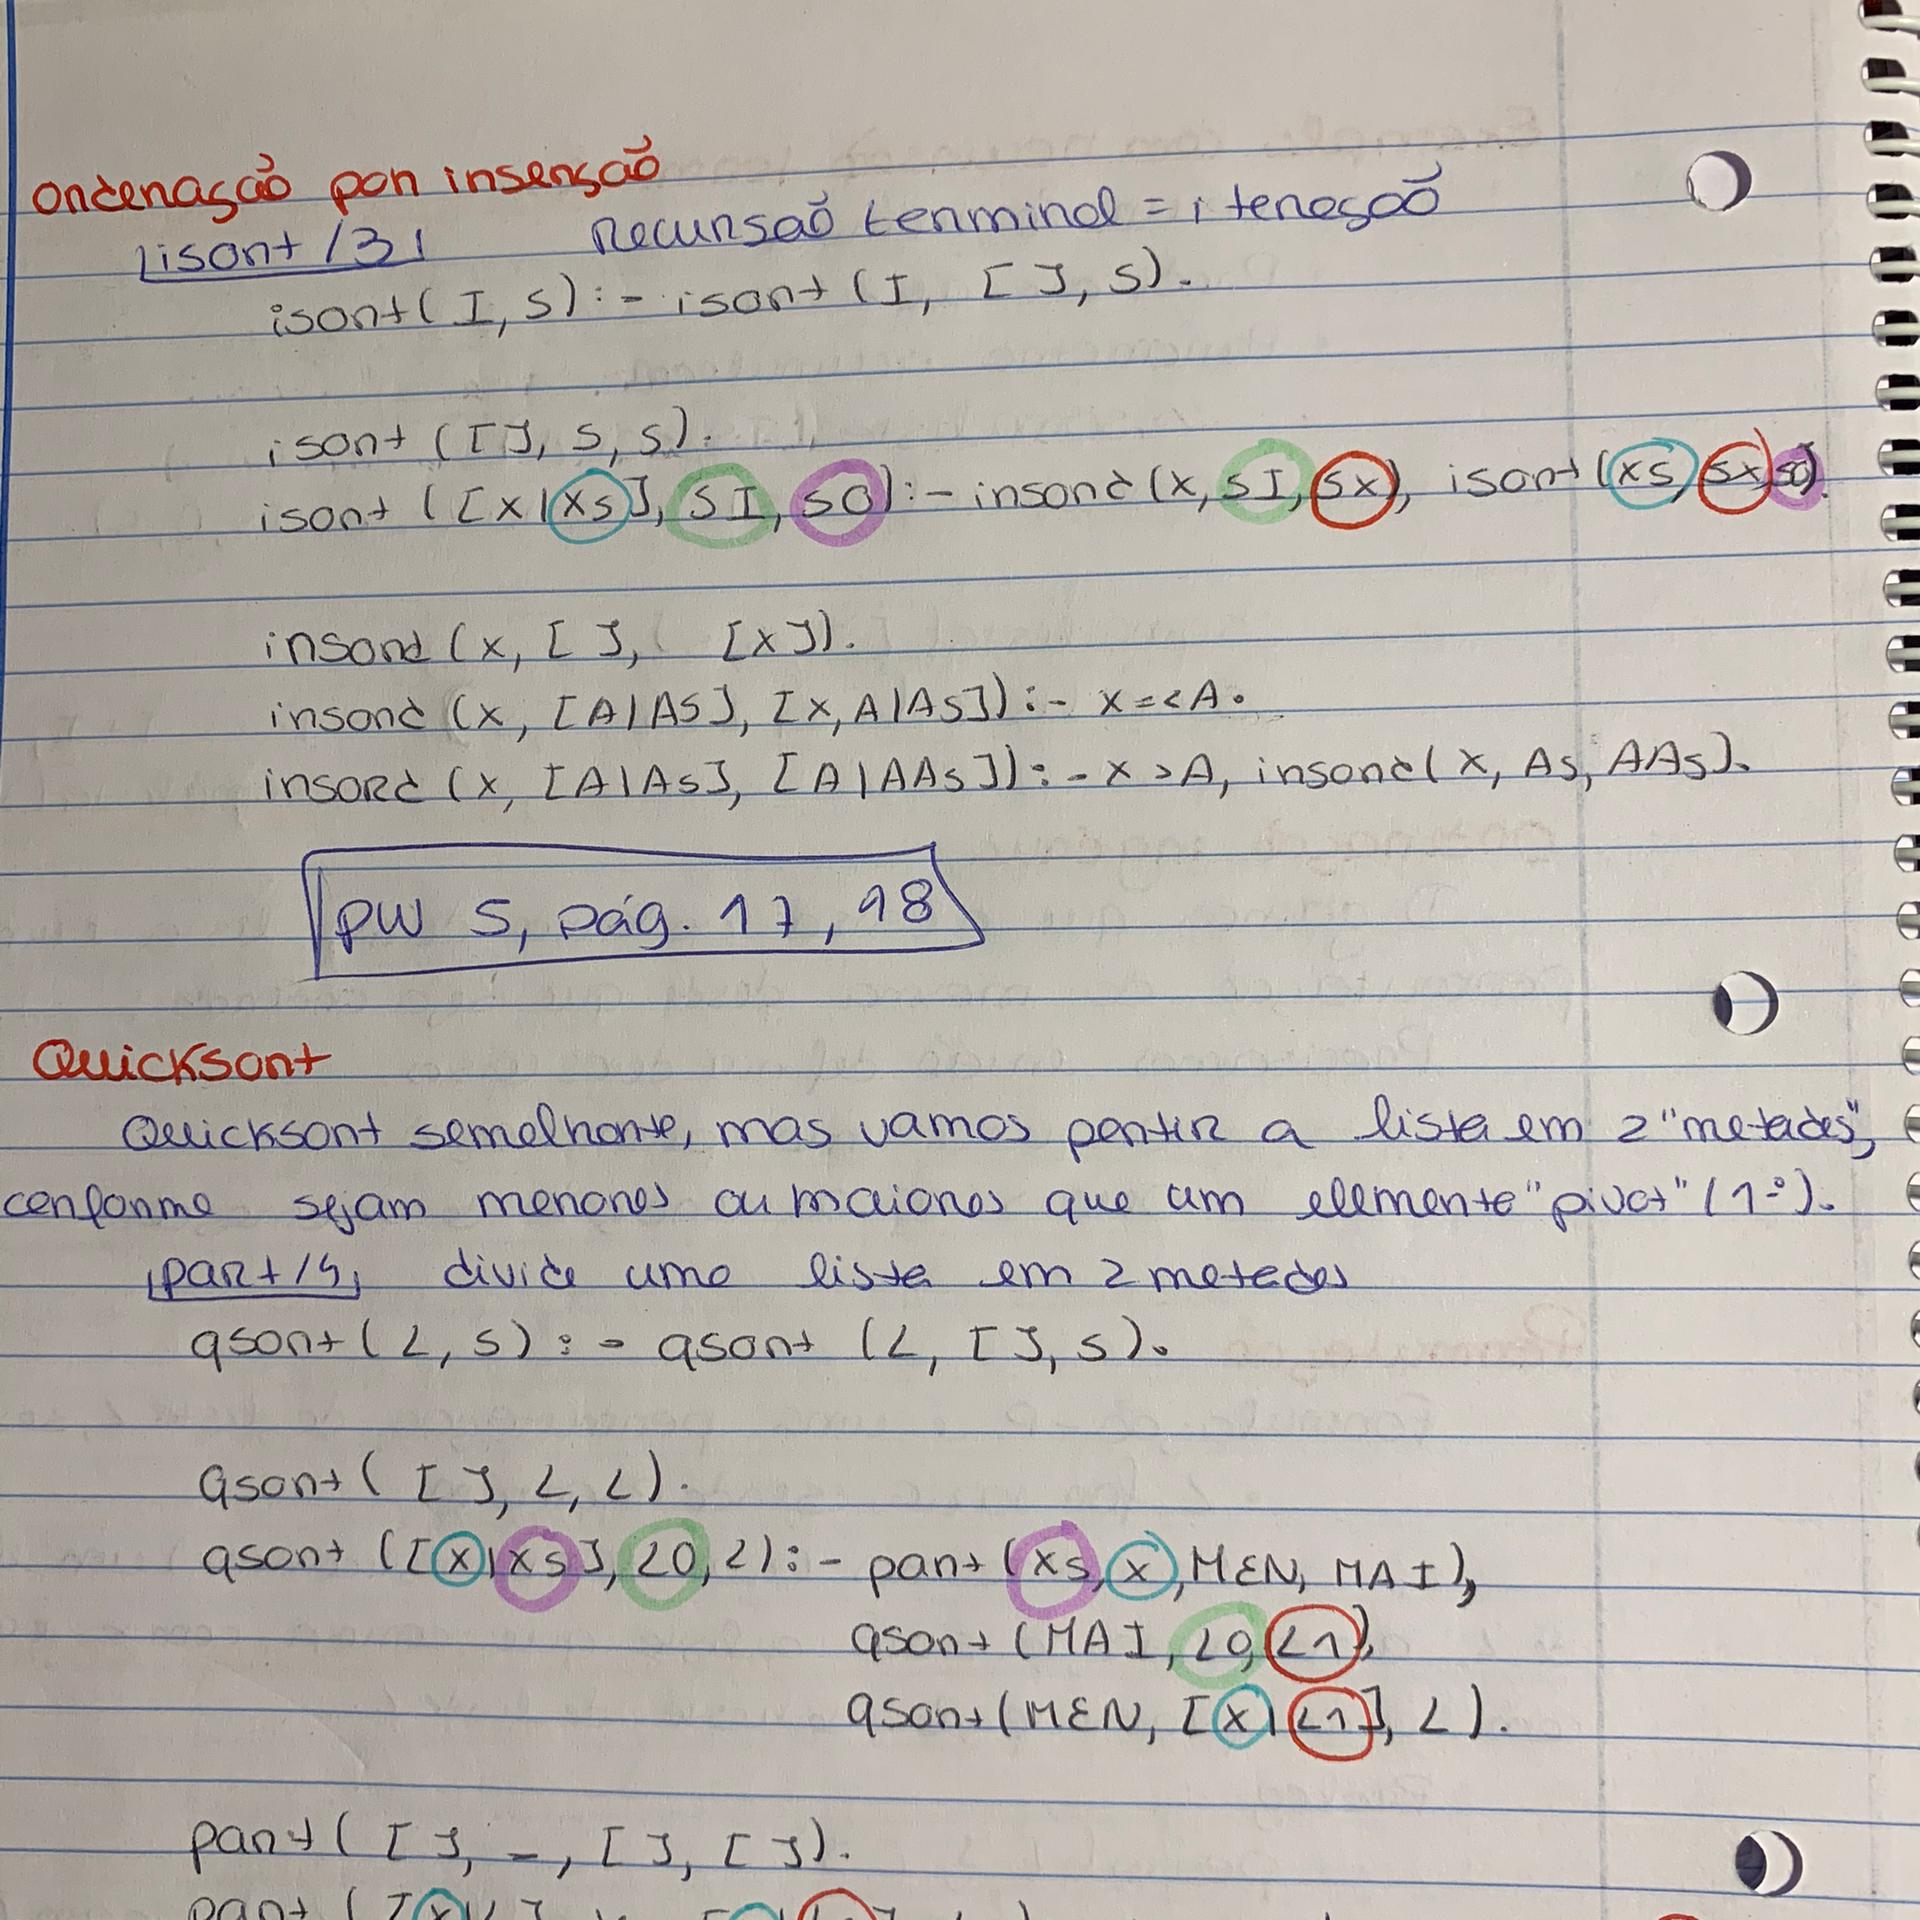 Ordenação por inserção
isort/3 Recursão terminal = iteração
isort(I, S) :- isort(I, [], S).
isort([], S, S).
isort([X|Xs], SI, SO) :- insord(X, SI, SX), isort(Xs, SX, SO).
insord(X, [], [X]).
insord(X, [A|As], [X,A|As]) :- X =< A.
insord(X, [A|As], [A|AAs]) :- X > A, insord(X, As, AAs).
PW 5, pág. 17, 18
Quicksort
Quicksort semelhante, mas vamos partir a lista em 2 "metades",
conforme sejam menores ou maiores que um elemento "pivot" (1º).
part/4 divide uma lista em 2 metades
qsort(L, S) :- qsort(L, [], S).
qsort([], L, L).
qsort([X|Xs], L0, L) :- part(Xs, X, MEN, MAI),
qsort(MAI, L0, L1),
qsort(MEN, [X|L1], L).
part([], _, [], []).